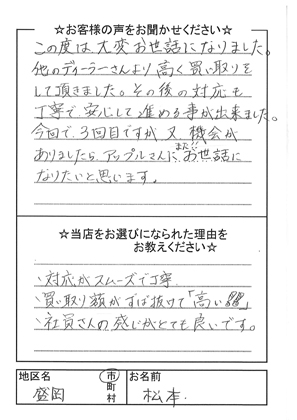 ☆お客様の声をお聞かせください☆
この度は大変お世話になりました。
他のディーラーさんより高く買い取りを
して頂きました。その後の対応も
丁寧で安心して進める事が出来ました。
今回で3回目ですが又機会が
ありましたらアップルさんに、またお世話に
なりたいと思います。
☆当店をお選びになられた理由を
お教えください☆
・対応がスムーズで丁寧
・買い取り額がずば抜けて「高い」
・社員さんの感じがとても良いです。
地区名
盛岡
市
町
村
お名前
松本